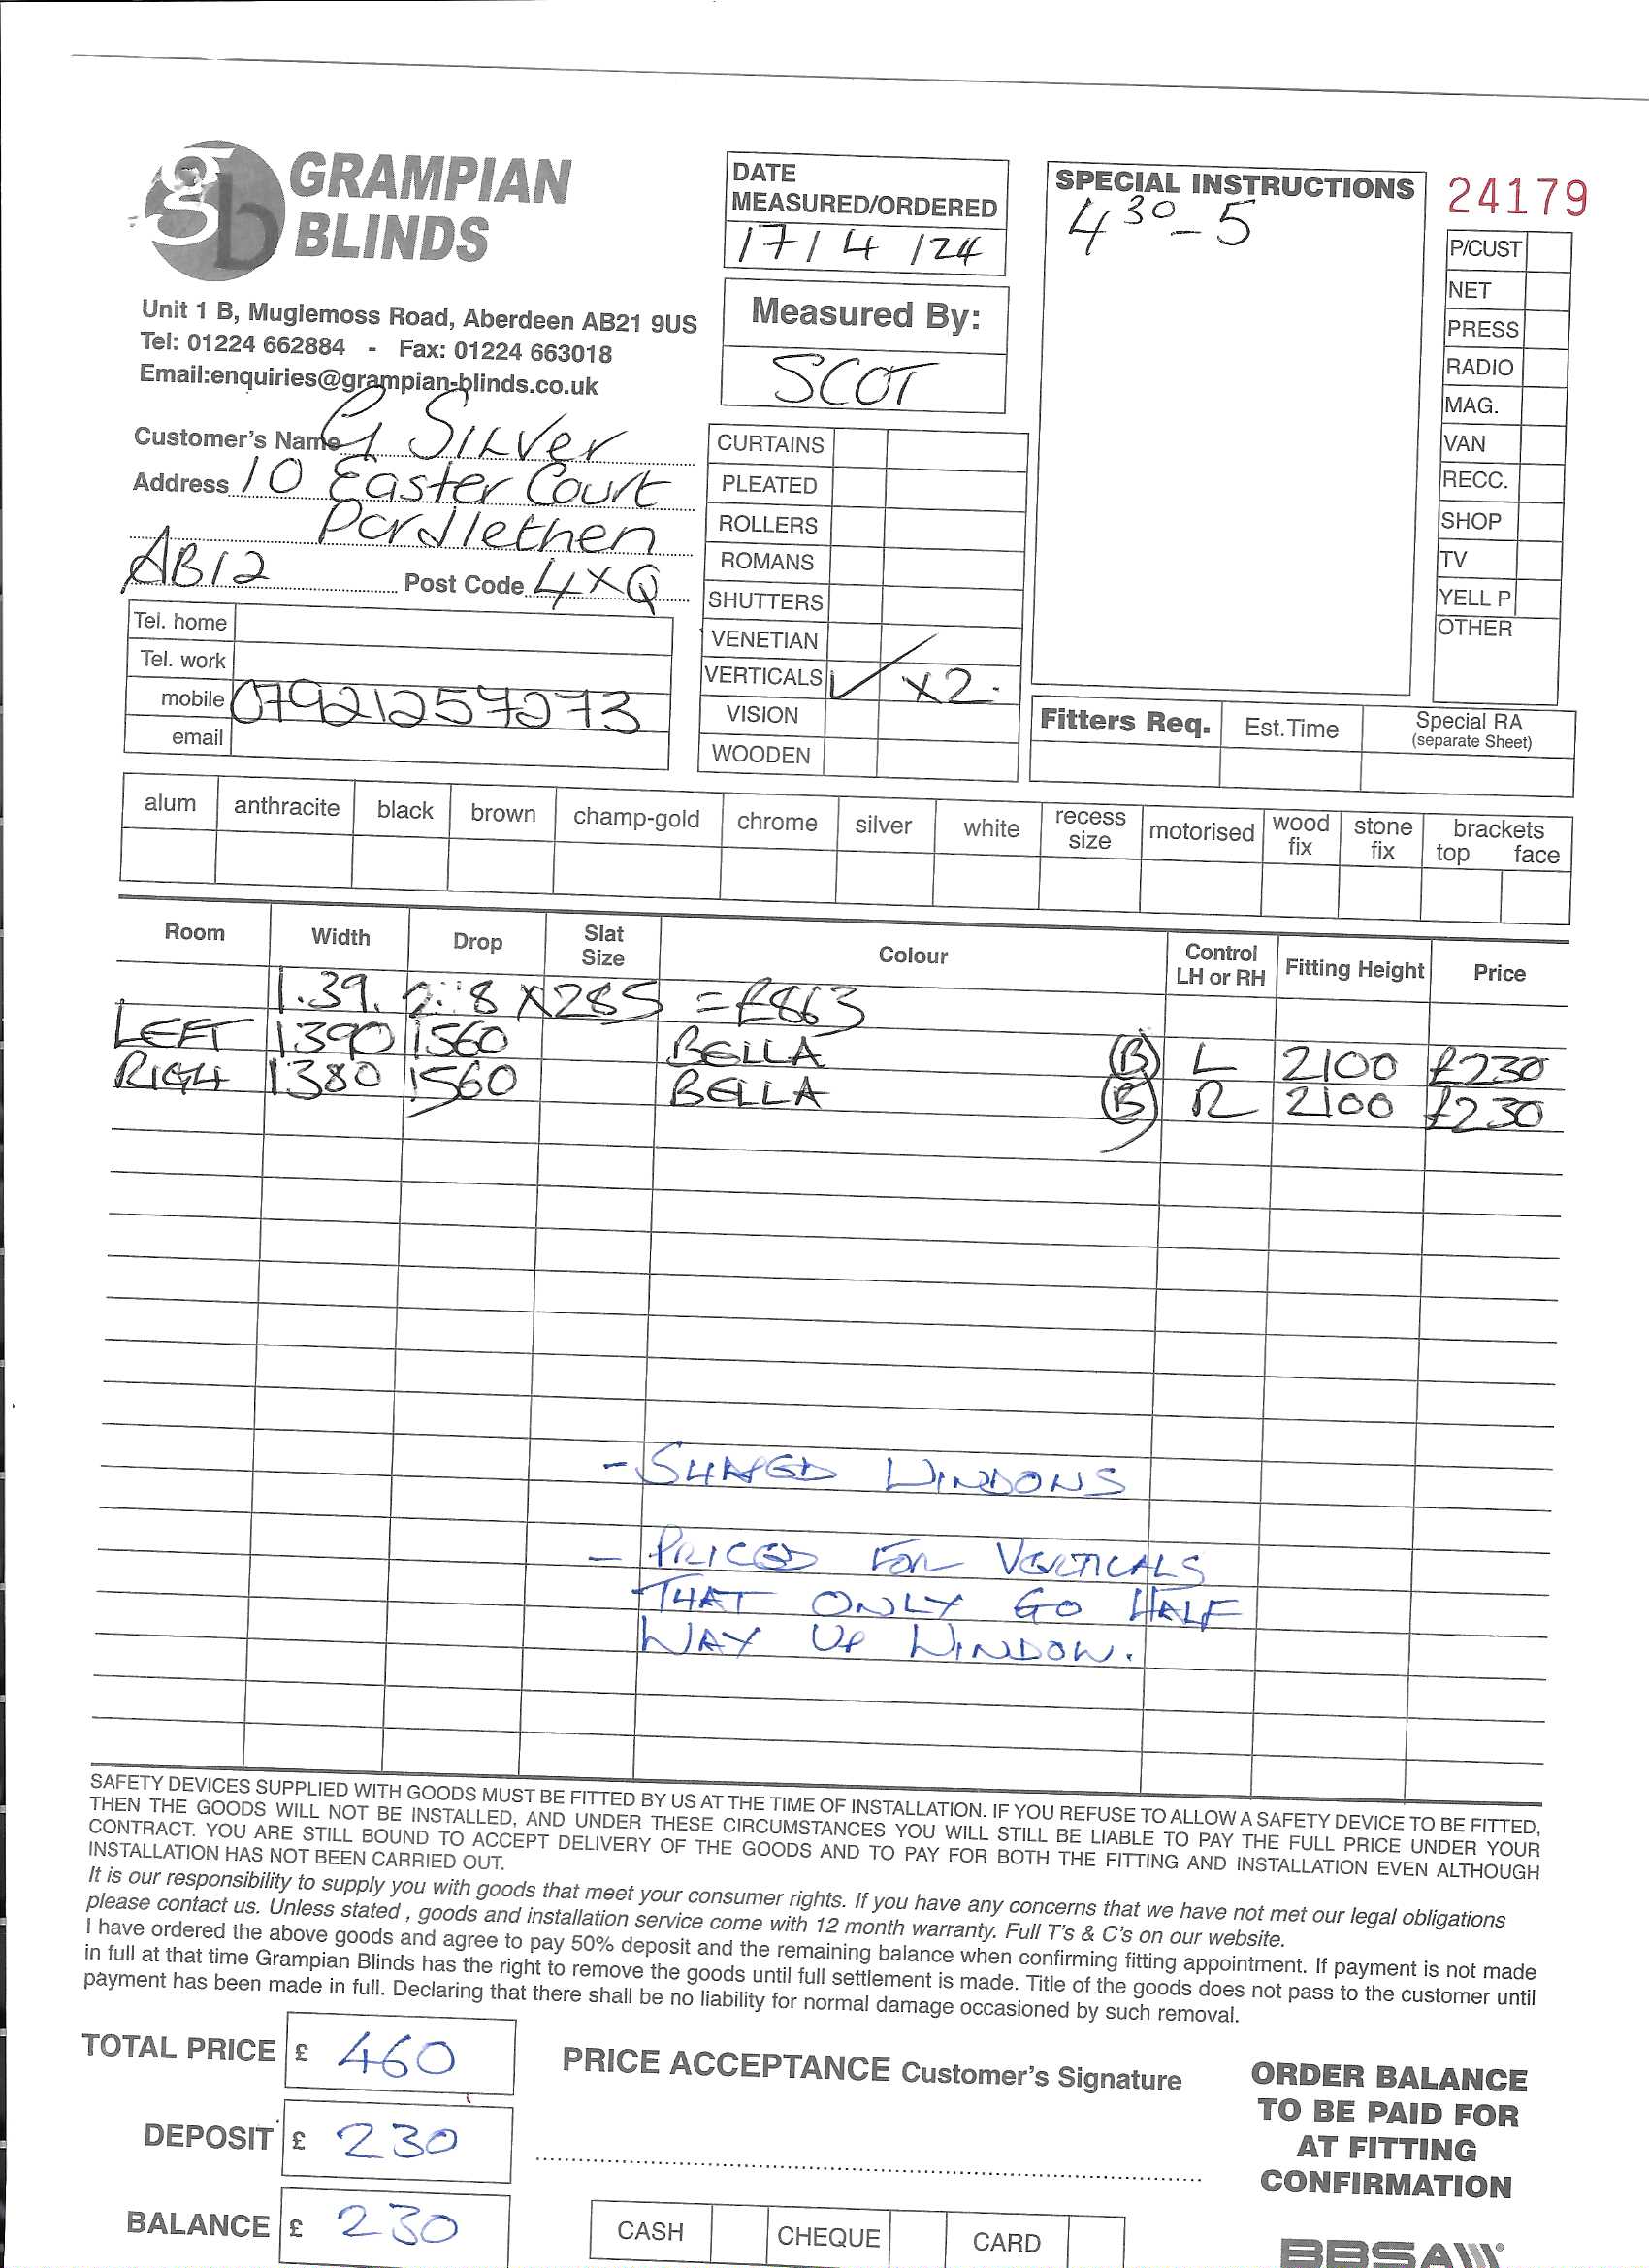 gb GRAMPIAN
BLINDS
Unit 1 B, Mugiemoss Road, Aberdeen AB21 9US
Tel: 01224 662884 - Fax: 01224 663018
Email:enquiries@grampian-blinds.co.uk
DATE
MEASURED/ORDERED
17/4/24
Measured By:
SCOT
SPECIAL INSTRUCTIONS
4 30 - 5
24179
P/CUST
NET
PRESS
RADIO
MAG.
VAN
RECC.
SHOP
TV
YELL P
OTHER
Customer's Name G Silver
Address 10 Easter Court
Pordlethen
AB12 Post Code 4XQ
Tel. home
Tel. work
mobile 07921257273
email
CURTAINS
PLEATED
ROLLERS
ROMANS
SHUTTERS
VENETIAN
VERTICALS ✓ x2.
VISION
WOODEN
Fitters Req. Est.Time Special RA
(separate Sheet)
alum anthracite black brown champ-gold chrome silver white recess size motorised wood fix stone fix brackets top face
Room Width Drop Slat Size Colour Control LH or RH Fitting Height Price
1.39. 8 X285 = £863
LEFT 1390 1560 BELLA (B) L 2100 £230
RIGH 1380 1560 BELLA (B) R 2100 £230
- WINDOWS
- PRICED FOR VERTICALS
THAT ONLY GO HALF
WAY UP WINDOW.
SAFETY DEVICES SUPPLIED WITH GOODS MUST BE FITTED BY US AT THE TIME OF INSTALLATION. IF YOU REFUSE TO ALLOW A SAFETY DEVICE TO BE FITTED,
THEN THE GOODS WILL NOT BE INSTALLED, AND UNDER THESE CIRCUMSTANCES YOU WILL STILL BE LIABLE TO PAY THE FULL PRICE UNDER YOUR
CONTRACT. YOU ARE STILL BOUND TO ACCEPT DELIVERY OF THE GOODS AND TO PAY FOR BOTH THE FITTING AND INSTALLATION EVEN ALTHOUGH
INSTALLATION HAS NOT BEEN CARRIED OUT.
It is our responsibility to supply you with goods that meet your consumer rights. If you have any concerns that we have not met our legal obligations
please contact us. Unless stated , goods and installation service come with 12 month warranty. Full T's & C's on our website.
I have ordered the above goods and agree to pay 50% deposit and the remaining balance when confirming fitting appointment. If payment is not made
in full at that time Grampian Blinds has the right to remove the goods until full settlement is made. Title of the goods does not pass to the customer until
payment has been made in full. Declaring that there shall be no liability for normal damage occasioned by such removal.
TOTAL PRICE £ 460
DEPOSIT £ 230
BALANCE £ 230
PRICE ACCEPTANCE Customer's Signature
CASH CHEQUE CARD
ORDER BALANCE
TO BE PAID FOR
AT FITTING
CONFIRMATION
BBSA